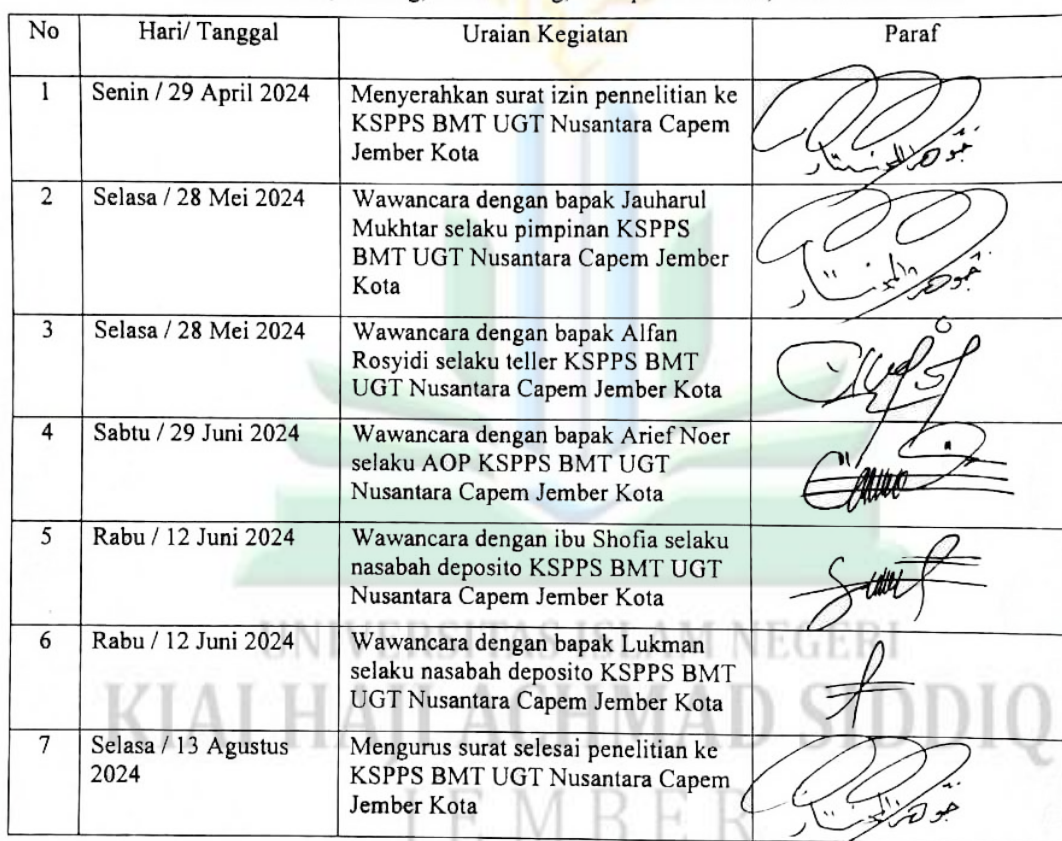 No Hari/ Tanggal Uraian Kegiatan Paraf
1 Senin / 29 April 2024 Menyerahkan surat izin pennelitian ke
KSPPS BMT UGT Nusantara Capem
Jember Kota
2 Selasa / 28 Mei 2024 Wawancara dengan bapak Jauharul
Mukhtar selaku pimpinan KSPPS
BMT UGT Nusantara Capem Jember
Kota
3 Selasa / 28 Mei 2024 Wawancara dengan bapak Alfan
Rosyidi selaku teller KSPPS BMT
UGT Nusantara Capem Jember Kota
4 Sabtu / 29 Juni 2024 Wawancara dengan bapak Arief Noer
selaku AOP KSPPS BMT UGT
Nusantara Capem Jember Kota
5 Rabu / 12 Juni 2024 Wawancara dengan ibu Shofia selaku
nasabah deposito KSPPS BMT UGT
Nusantara Capem Jember Kota
6 Rabu / 12 Juni 2024 Wawancara dengan bapak Lukman
selaku nasabah deposito KSPPS BMT
UGT Nusantara Capem Jember Kota
7 Selasa / 13 Agustus
2024
Mengurus surat selesai penelitian ke
KSPPS BMT UGT Nusantara Capem
Jember Kota
UNIVERSITAS ISLAM NEGERI
KIAI HAJI ACHMAD SIDDIQ
JEMBER